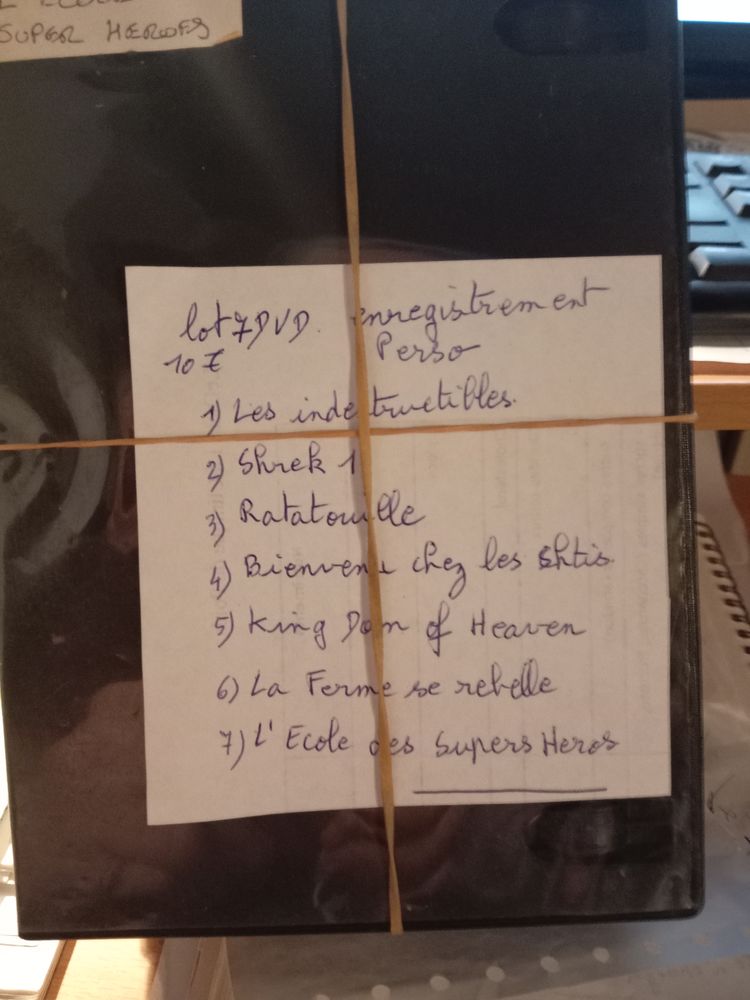 SUPER HEROES
lot 7 DVD. enregistrement
10 € Perso
1) Les indestructibles.
2) Shrek 1
3) Ratatouille
4) Bienvenu chez les Shtis.
5) King Dom of Heaven
6) La Ferme se rebelle
7) L'Ecole des Supers Heros